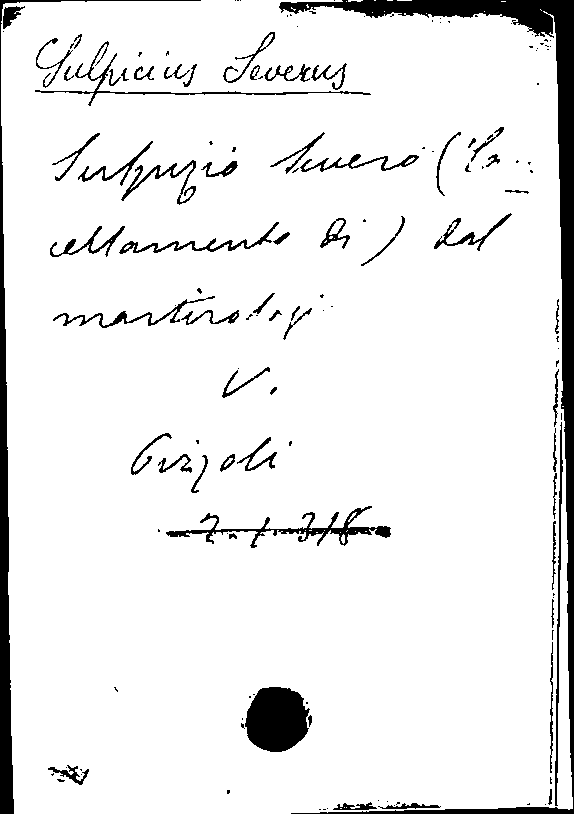 Sulpicius Severus
Sulpizio Severo (
cellamento di) dal
martirologi
V.
Grizoli
2. 1. 318